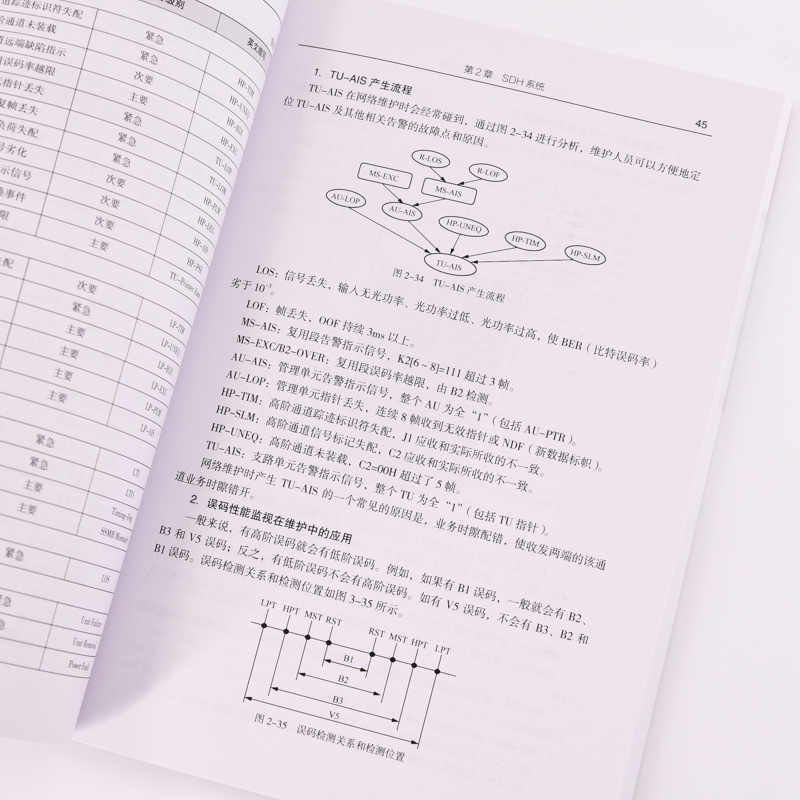 踪迹标识符失配
通道未装载
紧急
HP-TIM
远端缺陷指示
紧急
HP-UNEQ
误码率越限
次要
HP-RDI
指针丢失
主要
HP-EXC
复帧丢失
紧急
TU-LOP
负荷失配
紧急
TU-LOM
号劣化
紧急
HP-PLM
示信号
次要
HP-DEG
换事件
次要
HP-AIS
限
次要
HP-PSL
主要
次要
LP-TIM
紧急
LP-UNEQ
主要
LP-RDI
主要
LP-EXC
主要
LP-PLM
主要
LP-AIS
紧急
LTI
紧急
LTO
主要
主要
紧急
LOS
Unit Failure
Unit Removal
Power Fail
第2章 SDH 系统
45
1. TU-AIS 产生流程
TU-AIS 在网络维护时会经常碰到，通过图 2-34 进行分析，维护人员可以方便地定
位 TU-AIS 及其他相关告警的故障点和原因。
R-LOS
R-LOF
MS-EXC
MS-AIS
AU-LOP
AU-AIS
HP-UNEQ
HP-TIM
HP-SLM
TU-AIS
图 2-34 TU-AIS 产生流程
LOS：信号丢失，输入无光功率、光功率过低、光功率过高，使 BER（比特误码率）
劣于 10⁻³。
LOF：帧丢失，OOF 持续 3ms 以上。
MS-AIS：复用段告警指示信号，K2[6～8]=111 超过 3 帧。
MS-EXC/B2-OVER：复用段误码率越限，由 B2 检测。
AU-AIS：管理单元告警指示信号，整个 AU 为全“1”（包括 AU-PTR）。
AU-LOP：管理单元指针丢失，连续 8 帧收到无效指针或 NDF（新数据标帜）。
HP-TIM：高阶通道踪迹标识符失配，J1 应收和实际所收的不一致。
HP-SLM：高阶通道信号标记失配，C2 应收和实际所收的不一致。
HP-UNEQ：高阶通道未装载，C2=00H 超过了 5 帧。
TU-AIS：支路单元告警指示信号，整个 TU 为全“1”（包括 TU 指针）。
网络维护时产生 TU-AIS 的一个常见的原因是，业务时隙配错，使收发两端的该通
道业务时隙错开。
2. 误码性能监视在维护中的应用
一般来说，有高阶误码就会有低阶误码。例如，如果有 B1 误码，一般就会有 B2、
B3 和 V5 误码；反之，有低阶误码不会有高阶误码。如有 V5 误码，不会有 B3、B2 和
B1 误码。误码检测关系和检测位置如图 3-35 所示。
LPT HPT MST RST
RST MST HPT LPT
B1
B2
B3
V5
图 2-35 误码检测关系和检测位置